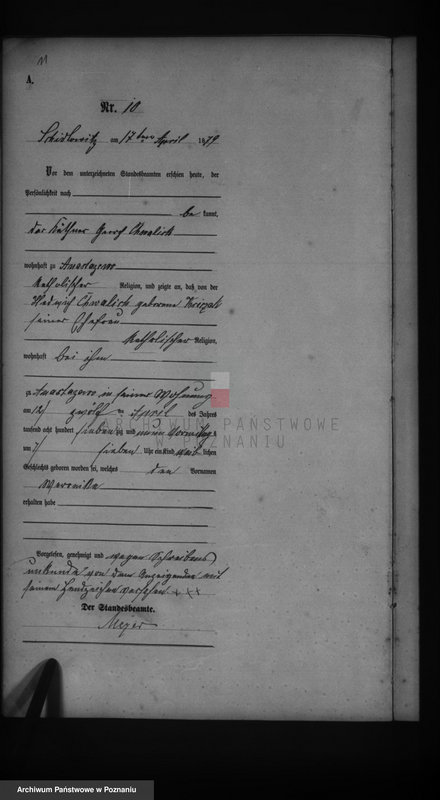 11
A.
Nr. 10
am 17ten April 1879
Vor dem unterzeichneten Standesbeamten erschien heute, der
Persönlichkeit nach
be kannt,
der Käthner Chwalick
wohnhaft zu Anastazewo
katholischer Religion, und zeigte an, daß von der
Hedwig Chwalick geborene
seiner Ehefrau
katholischer Religion,
wohnhaft bei ihm
zu Anastazewo in seiner Wohnung
am 12 zwölf ten April des Jahres
tausend acht hundert sieben zig und neun Vormittags
um 7 sieben Uhr ein Kind weib lichen
Geschlechts geboren worden sei, welches den Vornamen
Veronika
erhalten habe
Vorgelesen, genehmigt und wegen Schreibens
unkunde von dem Anzeigenden mit
seinem Handzeichen versehen +++
Der Standesbeamte.
Meyer
ARCHIWUM PAŃSTWOWE
W POZNANIU
Archiwum Państwowe w Poznaniu